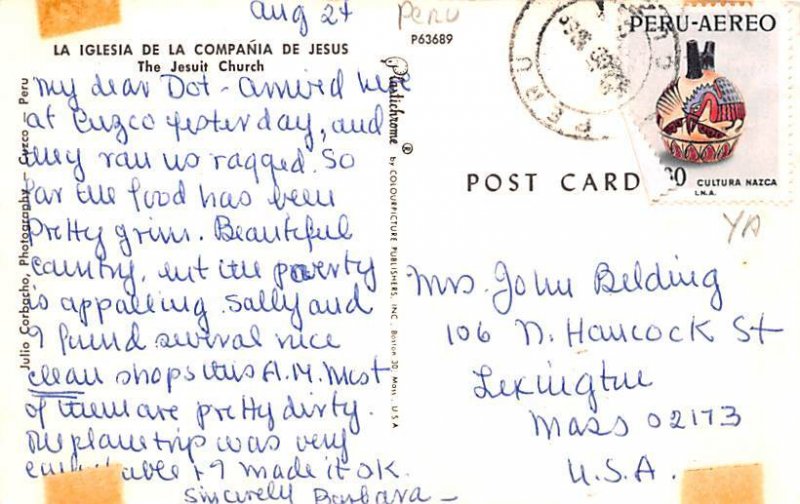 Aug 24
Peru
LA IGLESIA DE LA COMPAÑIA DE JESUS
The Jesuit Church
P63689
My dear Dot - arrived here
at Cuzco yesterday, and
they ran us ragged. So
far the food has been
pretty grim. Beautiful
country, but the poverty
is appalling. Sally and
I found several nice
clean shops this A.M. Most
of them are pretty dirty.
The plane trip was very
& I made it OK.
Sincerely Barbara -
Julio Corbacho, Photography - Cuzco - Peru
Plastichrome ® by COLOURPICTURE PUBLISHERS, INC. Boston 30, Mass., U.S.A.
PERU
PERU-AEREO
80
CULTURA NAZCA
I.N.A.
POST CARD
YA
Mrs. John Belding
106 N. Hancock St
Lexington
Mass 02173
U.S.A.